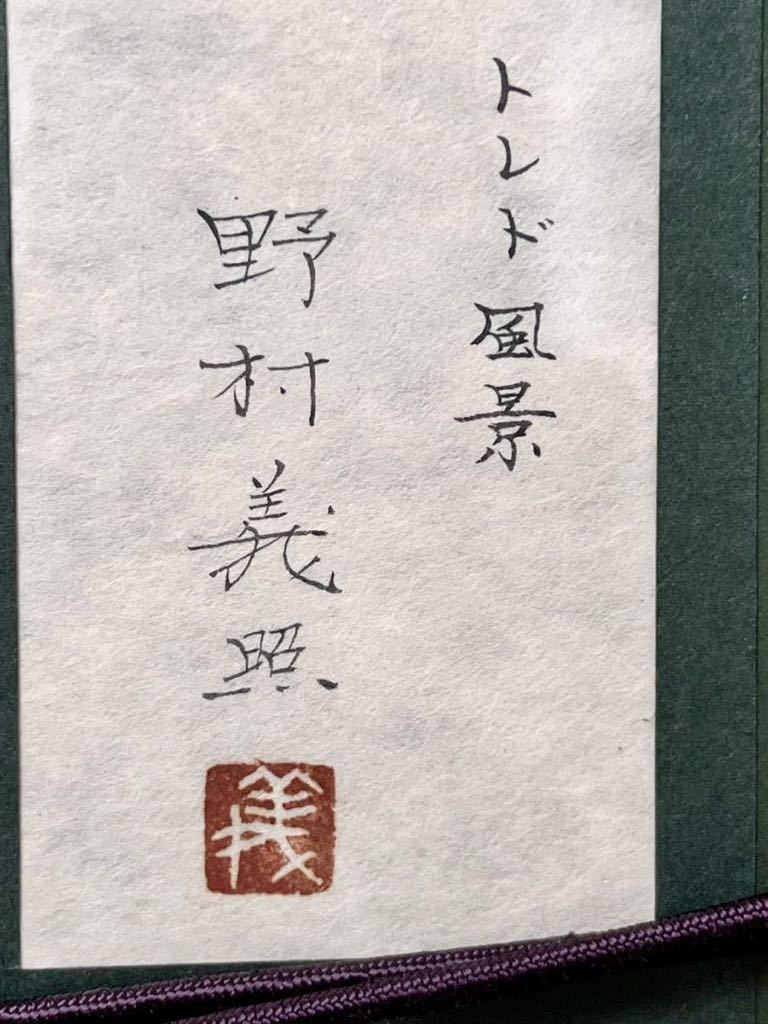 トレド風景
野村義照
義